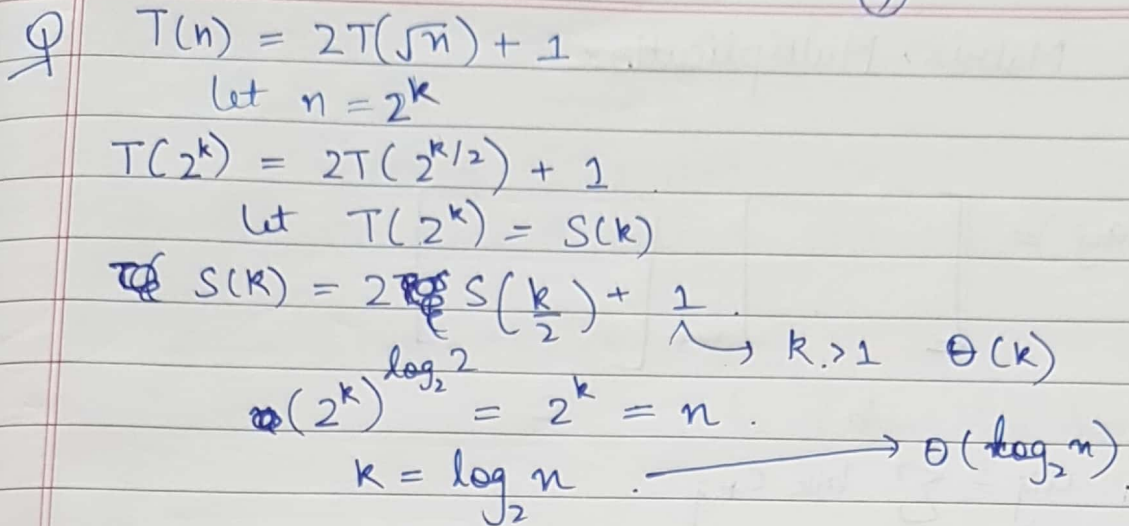 Q T(n) = 2T(√n) + 1
let n = 2^k
T(2^k) = 2T(2^(k/2)) + 1
let T(2^k) = S(k)
S(k) = 2 S(k/2) + 1 → k > 1 θ(k)
(2^k)^(log₂2) = 2^k = n.
k = log₂ n. → θ(log₂ n)